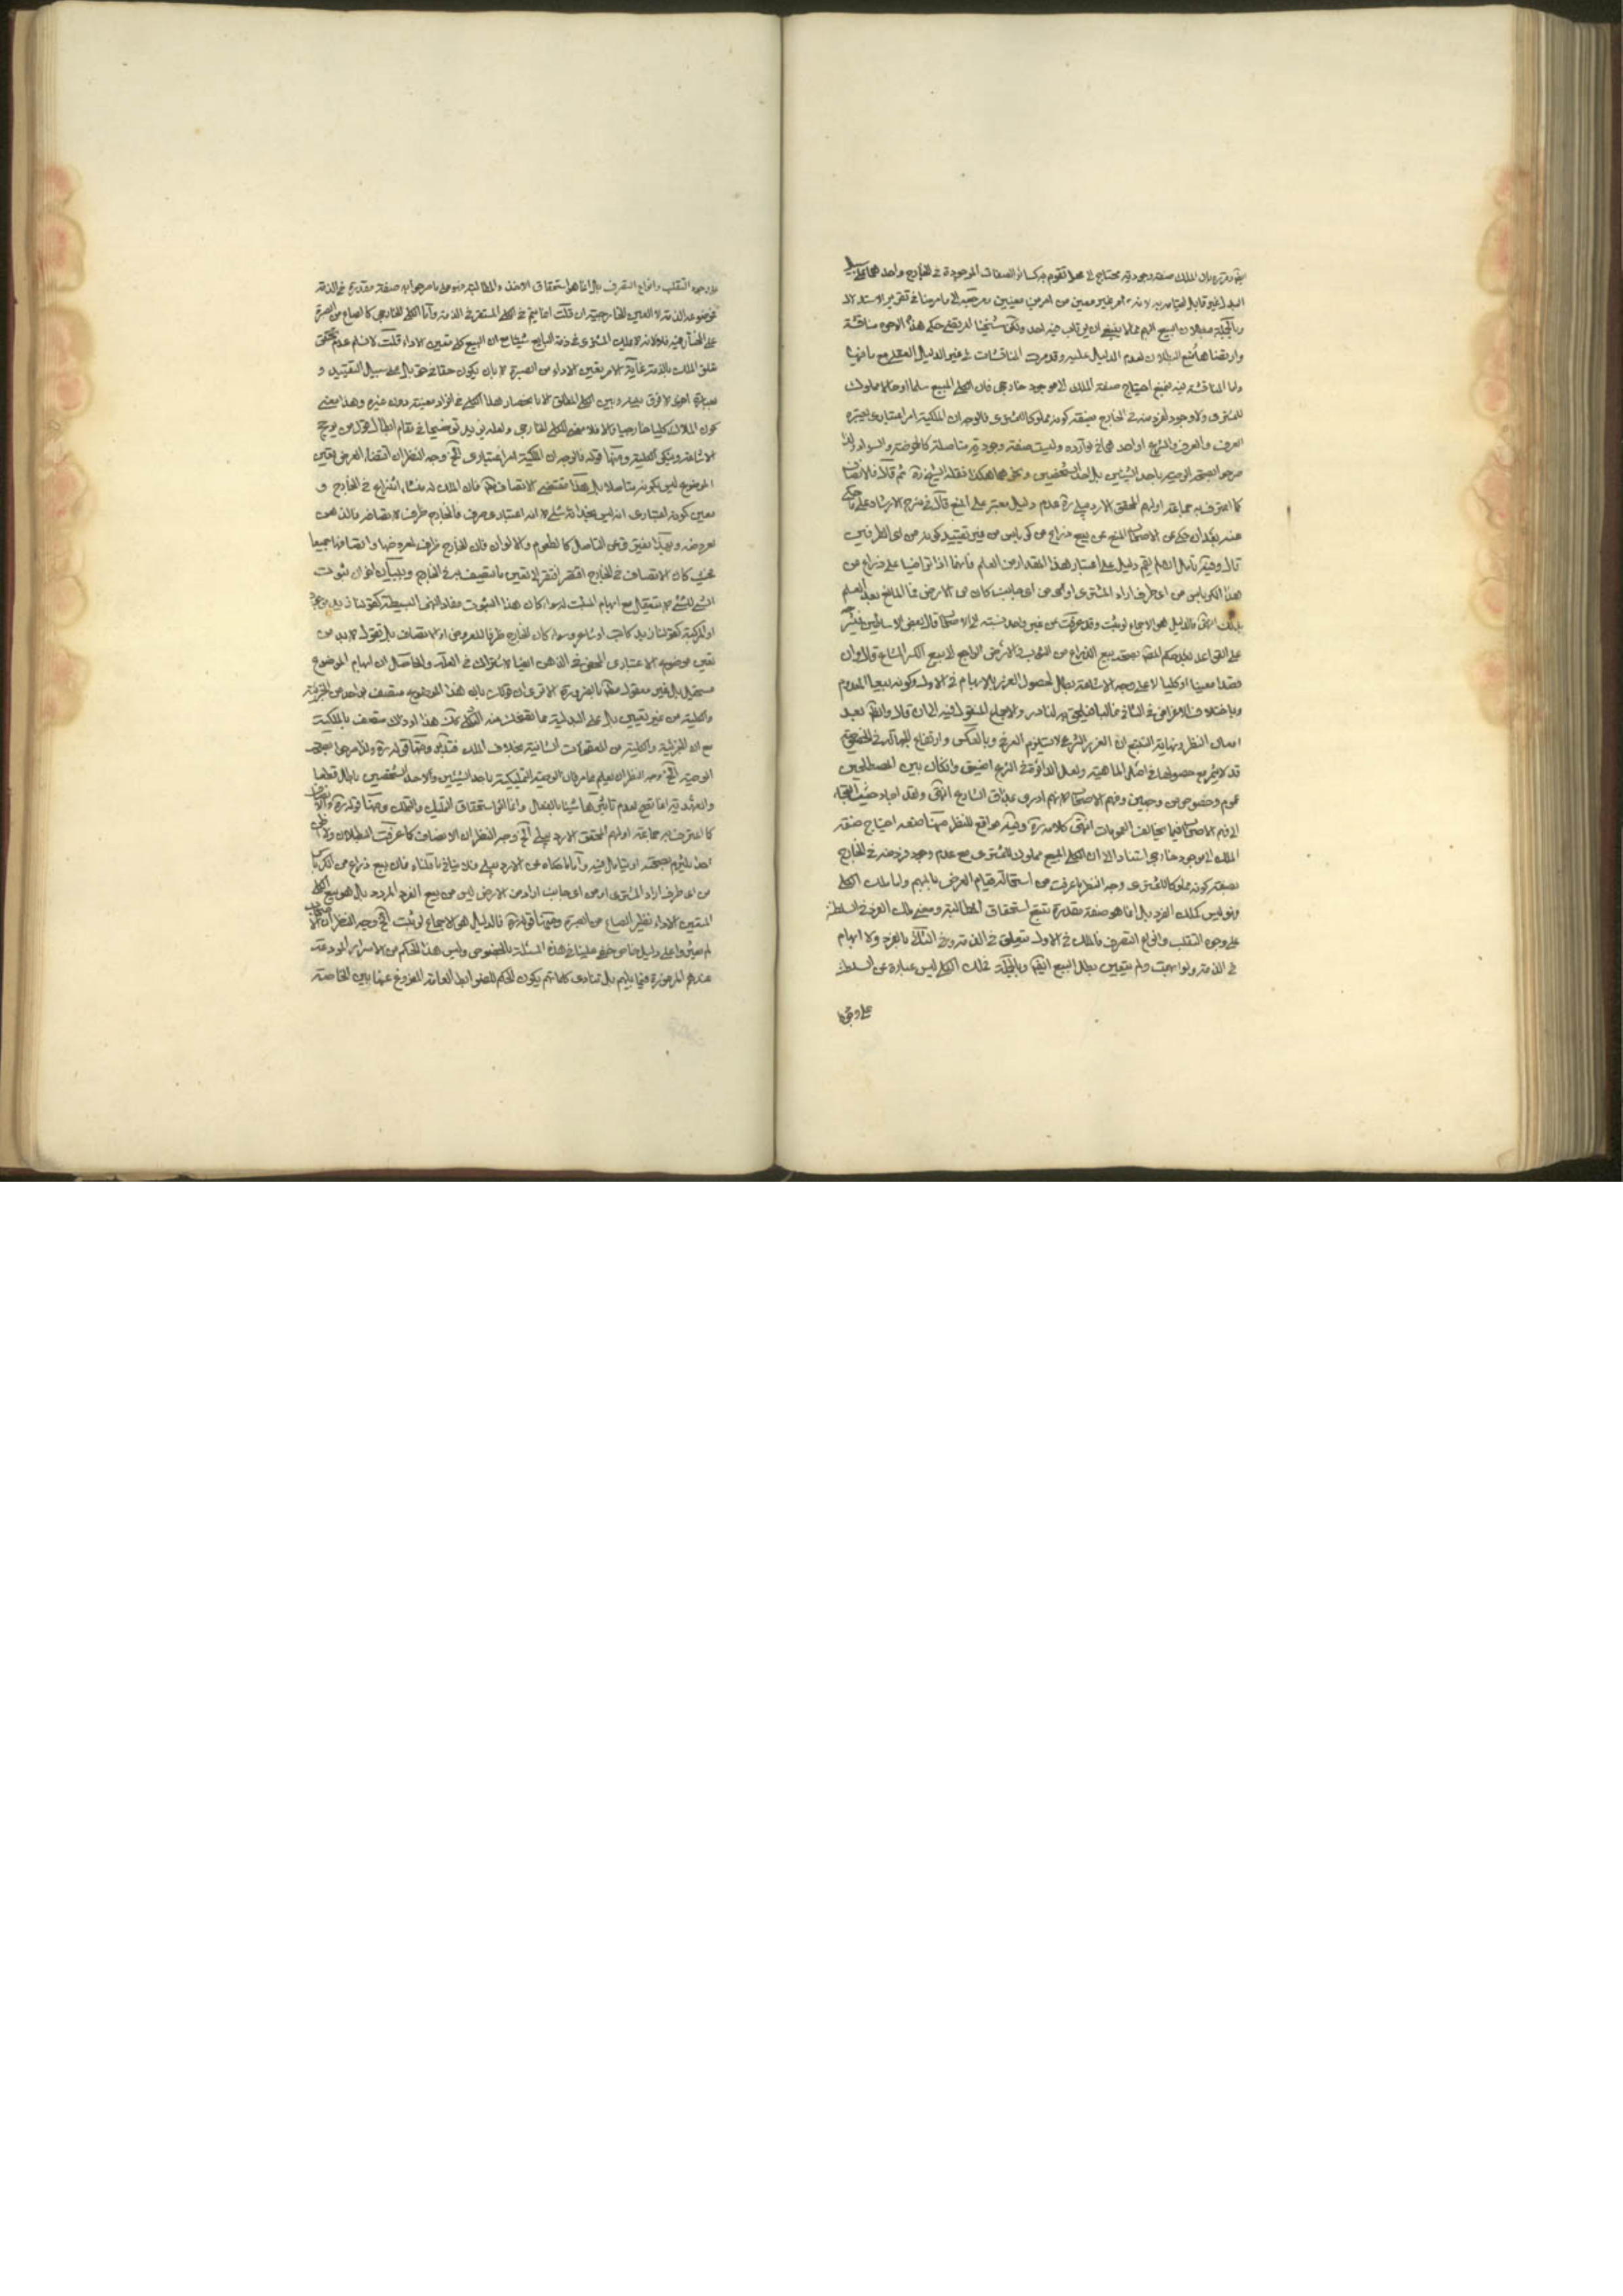 بتقريره بان الملك صفة وجودية محتاج الى محل تقوم به كسائر الصفات الموجودة في الخارج واحدهما على سبيل
البدل غير قابل لقيامه به لانه امر غير معين من امرين معينين
وبالجملة فبطلان البيع
وارتضاها لمنع البطلان لعدم الدليل عليه وقد مرت المناقشات في غير الدليل العقلي مع ما فيها
واما المناقشة فيه فبمنع احتياج صفة الملك الى موجود خارجي فان الكلي المبيع سلما او حالا مملوك
للمشتري ولا وجود لفرد منه في الخارج بصفة كونه مملوكا للمشتري فالوجه ان الملكية امر اعتباري يعتبره
العرف والشرع او احدهما في موارده وليست صفة وجودية متاصلة كالحموضة والسواد ولذا
صرحوا بصحة الوصية باحد الشيئين بل احد الشخصين ونحوهما هكذا نقله الشيخ ره ثم قال فالانصاف
كما اعترف به جماعة اولهم المحقق الاردبيلي ره عدم دليل معتبر على المنع قال في شرح الارشاد على ما حكي
عنه بعد ان حكى عن الاصحاب المنع عن بيع ذراع من كرباس من غير تقييد كونه من اي الطرفين
قال وفيه تامل اذ لم يقم دليل على اعتبار هذا المقدار من العلم فانهما اذا تراضيا على ذراع من
هذا الكرباس من اي طرف اراد المشتري او من اي جانب كان من الارض فما المانع بعد العلم
بذلك انتهى فالدليل هو الاجماع لو ثبت وقد عرفت من غير واحد نسبته الى الاصحاب قال بعض الاساطين في شرحه
على القواعد بعد حكم المصنف بصحة بيع الذراع من الثوب والارض الراجع الى بيع الكسر المشاع قال وان
قصدا معينا او كليا لا على وجه الاشاعة بطل لحصول الغرر بالابهام في الاول وكونه بيع المعدوم
وباختلاف الاغراض في الثاني غالبا فيلحق به النادر وللاجماع المنقول فيه الى ان قال والظاهر بعد
امعان النظر ونهاية التتبع ان الغرر الشرعي لا يستلزم الغرر العرفي وبالعكس وارتفاع الجهالة في الخصوصية
قد لا يثمر مع حصولها في اصل الماهية ولعل الدائرة في الشرع اضيق وان كان بين المصطلحين
عموم وخصوص من وجهين وفهم الاصحاب لانهم ادرى بمذاق الشارع انتهى ولقد اجاد حيث التجأ
الى فهم الاصحاب فيما يخالف العمومات انتهى كلامه ره وفيه مواقع للنظر منها منعه احتياج صفة
الملك الى موجود خارجي استنادا الى ان الكلي المبيع مملوك للمشتري مع عدم وجود فرد منه في الخارج
بصفة كونه مملوكا للمشتري وجه النظر ما عرفت من استحالة قيام العرض بالمبهم واما ملك الكلي
فهو ليس كملك الفرد بل انما هو صفة مقدرة تتبع استحقاق المطالبة ومعنى ملك الفرد السلطنة
على وجوه التقلب وانواع التصرف فالملك في الاول متعلق في الذمة وفي الثاني بالفرد ولا ابهام
في الذمة ولو ابهمت ولم تتعين بطل البيع ايضا وبالجملة فملك الكلي ليس عبارة عن السلطنة
على وجوه
على وجوه التقلب وانواع التصرف بل انما هو استحقاق الاخذ والمطالبة وهو على ما صرحوا به صفة مقدرة في الذمة
فموضوعه الذمة لا العين الخارجية ان قلت انما يتم في الكلي المستقر في الذمة واما الكلي الخارجي كالصاع من الصبرة
على المختار فيه فلا لانه لا يملك المشتري في ذمة البايع شيئا مع ان المبيع كلي متعين الاداء قلت لا نسلم عدم تحقق
تعلق الملك بالذمة غاية الامر تعين الاداء من الصبرة
بعبارة اخرى لا فرق بينه وبين الكلي المطلق الا بانحصار هذا الكلي في افراد معينة دون غيره وهذا معنى
كون الملاك كليا خارجيا والا فلا معنى للكلي الخارجي ولعله يزيد توضيحا في مقام ابطال قول من يرجح
الاشاعة وينكر الكلية ومنها قوله فالوجه ان الملكية امر اعتباري الخ وجه النظر ان اقتضاء العرض تعين
الموضوع ليس لكونه متاصلا بل هكذا مقتضى الاتصاف فان الملك له منشأ انتزاع في الخارج و
معنى كونه اعتباري انه ليس بحذائه شيء لا انه اعتباري صرف فالخارج ظرف لاتصافه والذهن
لعروضه وبهذا يفترق عن المتاصل كالطعوم والالوان فان الخارج ظرف لعروضها واتصافها جميعا
فحيث كان الاتصاف في الخارج افتقر الى تعين ما يتصف به في الخارج وببيان اخر ان ثبوت
الشيء للشيء لا يتعقل مع ابهام المثبت له سواء كان هذا الثبوت مفاد الهلية البسيطة كقولنا زيد موجود
او المركبة كقولنا زيد كاتب او شاعر وسواء كان الخارج ظرفا للعروض او الاتصاف بل نقول لا بد من
تعين موضوع الاعتباري المحض في الذهن ايضا لاشتراك في العلة والحاصل ان ابهام الموضوع
مستحيل بل غير معقول مطلقا بالضرورة الا ترى ان قولك بان هذا الموضوع متصف بواحد من الجزئية
والكلية من غير تعيين بل على البدلية مما تضحك منه الثكلى
مع ان الجزئية والكلية من المعقولات الثانية بخلاف الملك فتدبر ومنها قوله ره ولذا صرحوا بصحة
الوصية الخ وجه النظر ان نعلم
والعهدية انما تصح لعدم تاثيرهما شيئا بالفعل وانما اثر استحقاق القبول والتملك ومنها قوله ره فالانصاف
كما اعترف به جماعة اولهم المحقق الاردبيلي الخ وجه النظر ان الانصاف كما عرفت البطلان ولا نظن
احدا يلتزم بصحته او يتامل فيه واما ما حكاه عن الاردبيلي فلا ينافي ما قلناه فان بيع ذراع من الكرباس
من اي طرف اراد المشتري او من اي جانب اراد من الارض ليس من بيع الفرد المردد بل هو بيع الكلي
المتعين الاداء نظير الصاع من الصبرة ومنها قوله ره فالدليل هو الاجماع لو ثبت الخ وجه النظر ان الاصحاب
لم يعثروا على دليل خاص خفي علينا في هذه المسئلة بالخصوص وليس هذا الحكم من الاسرار المودعة
عندهم المرموزة فيما بينهم بل تنادي كلماتهم بكون الحكم للضوابط العامة المفروغ عنها بين الخاصة